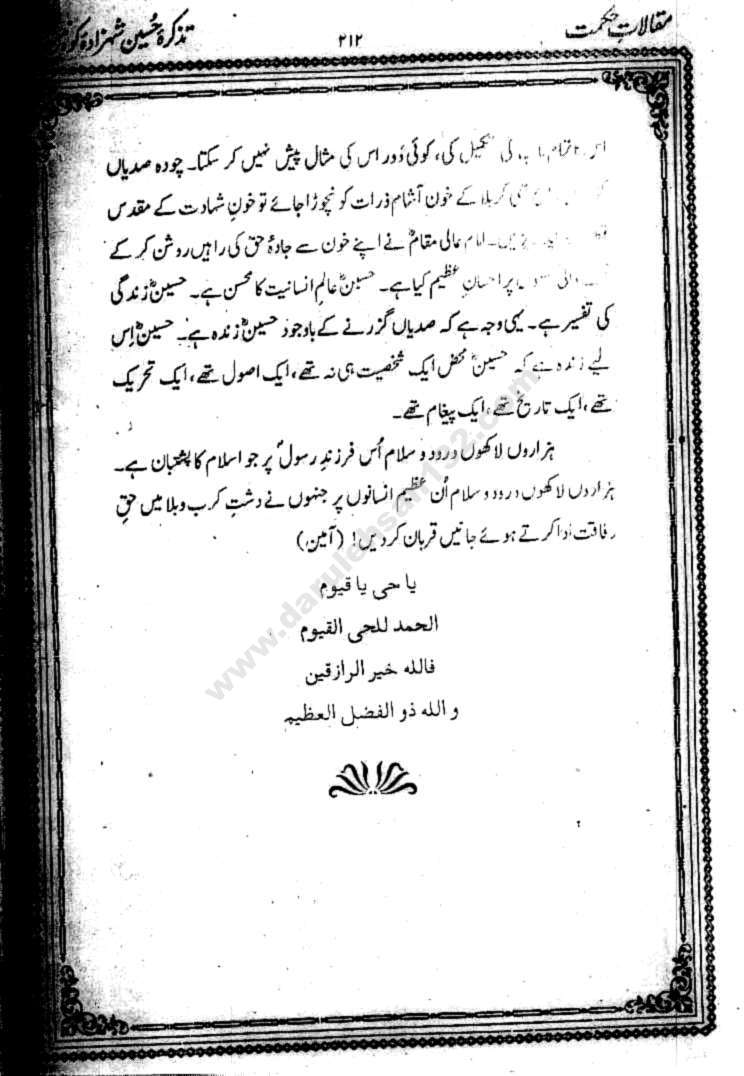 مقالاتِ حکمت
۲۱۲
تذکرۂ حُسین شہزادۂ
کی، کوئی دَور اس کی مثال پیش نہیں کر سکتا۔ چودہ صدیاں
کربلا کے خون آشام ذرات کو نچوڑا جائے تو خونِ شہادت کے مقدس
امام عالی مقامؓ نے اپنے خون سے جادۂ حق کی راہیں روشن کر کے
پر احسانِ عظیم کیا ہے۔ حسینؓ عالمِ انسانیت کا محسن ہے۔ حسینؓ زندگی
کی تفسیر ہے۔ یہی وجہ ہے کہ صدیاں گزرنے کے باوجود حسینؓ زندہ ہے۔ حسینؓ اِس
لیے زندہ ہے کہ حسینؓ محض ایک شخصیت ہی نہ تھے، ایک اصول تھے، ایک تحریک
تھے، ایک تاریخ تھے، ایک پیغام تھے۔
ہزاروں لاکھوں درود و سلام اُس فرزندِ رسولؐ پر جو اسلام کا پشتبان ہے۔
ہزاروں لاکھوں درود و سلام اُن عظیم انسانوں پر جنہوں نے دشتِ کرب و بلا میں حقِ
رفاقت ادا کرتے ہوئے جانیں قربان کر دیں! (آمین)
یا حی یا قیوم
الحمد للحی القیوم
فالله خیر الرازقین
و الله ذو الفضل العظیم